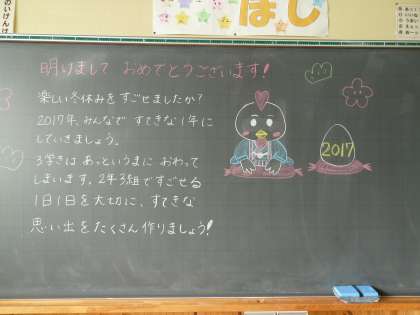 ほし
明けまして おめでとうございます!
楽しい冬休みをすごせましたか?
2017年、みんなで すてきな1年に
していきましょう。
3学きは あっというまに おわって
しまいます。2年3組ですごせる
1日1日を大切に、すてきな
思い出をたくさん作りましょう!
2017